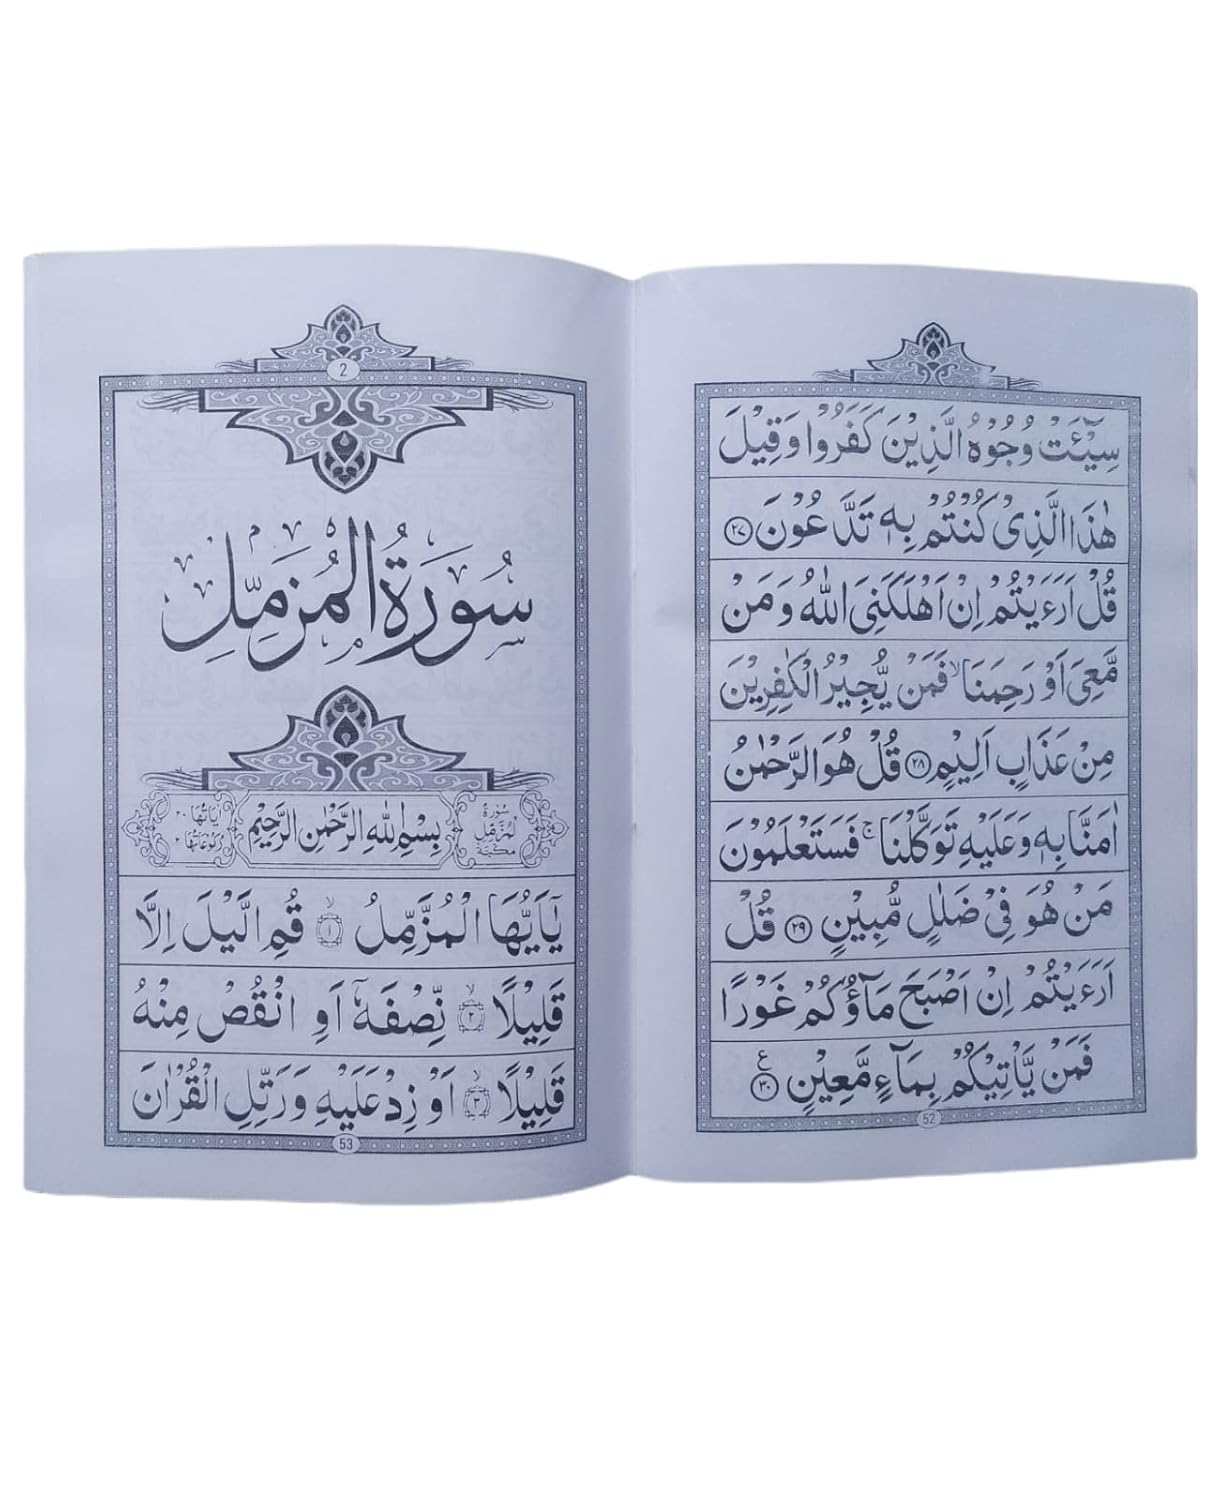 سِيْٓـَٔتْ وُجُوْهُ الَّذِيْنَ كَفَرُوْا وَقِيْلَ
هٰذَا الَّذِىْ كُنْتُمْ بِهٖ تَدَّعُوْنَ ۝٢٧
قُلْ اَرَءَيْتُمْ اِنْ اَهْلَكَنِىَ اللّٰهُ وَمَنْ
مَّعِىَ اَوْ رَحِمَنَا ۙ فَمَنْ يُّجِيْرُ الْكٰفِرِيْنَ
مِنْ عَذَابٍ اَلِيْمٍ ۝٢٨ قُلْ هُوَ الرَّحْمٰنُ
اٰمَنَّا بِهٖ وَعَلَيْهِ تَوَكَّلْنَا ۚ فَسَتَعْلَمُوْنَ
مَنْ هُوَ فِىْ ضَلٰلٍ مُّبِيْنٍ ۝٢٩ قُلْ
اَرَءَيْتُمْ اِنْ اَصْبَحَ مَآؤُكُمْ غَوْرًا
فَمَنْ يَّاْتِيْكُمْ بِمَآءٍ مَّعِيْنٍ ۝٣٠ ع
52
2
سُوْرَةُ الْمُزَمِّلِ
سُوْرَةُ
الْمُزَّمِّلِ
مَكِّيَّةٌ
بِسْمِ اللّٰهِ الرَّحْمٰنِ الرَّحِيْمِ
اٰيَاتُهَا ٢٠
رُكُوْعَاتُهَا ٢
يٰٓاَيُّهَا الْمُزَّمِّلُ ۝١ۙ قُمِ الَّيْلَ اِلَّا
قَلِيْلًا ۝٢ۙ نِّصْفَهٗٓ اَوِ انْقُصْ مِنْهُ
قَلِيْلًا ۝٣ۙ اَوْ زِدْ عَلَيْهِ وَرَتِّلِ الْقُرْاٰنَ
53